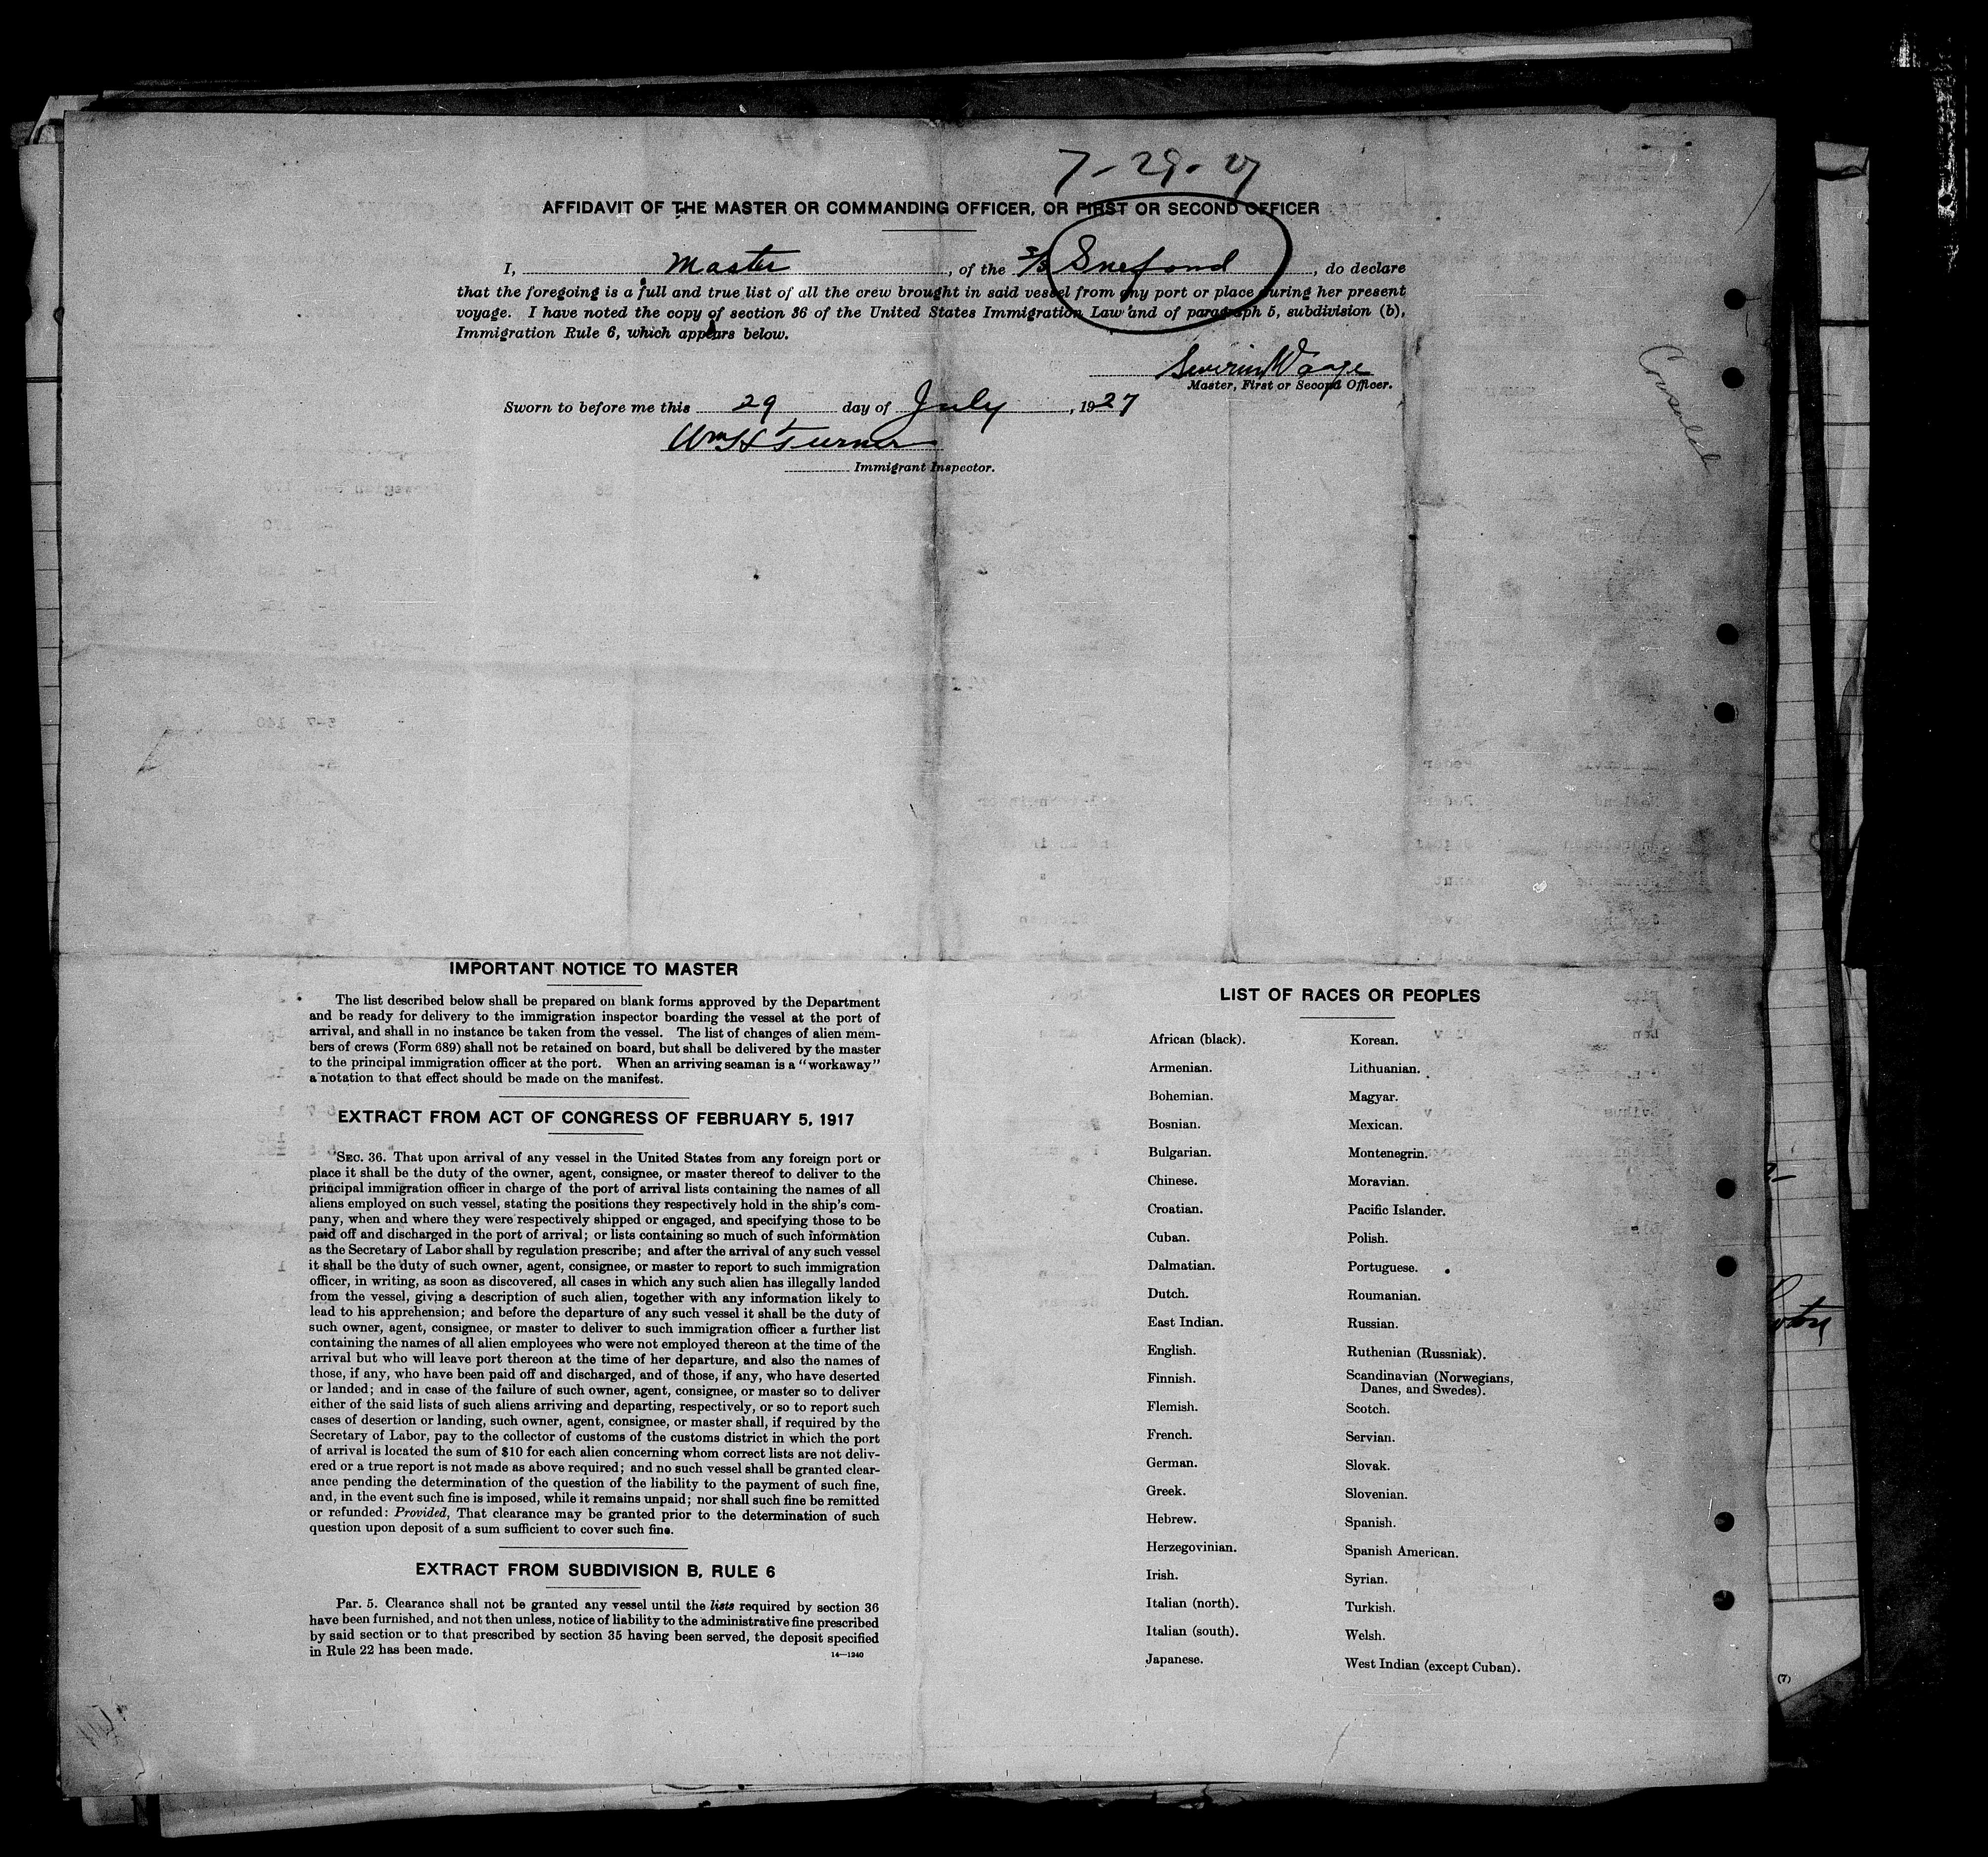 7-29-27
AFFIDAVIT OF THE MASTER OR COMMANDING OFFICER, OR FIRST OR SECOND OFFICER
I, Master, of the S/S Snefond, do declare
that the foregoing is a full and true list of all the crew brought in said vessel from any port or place during her present
voyage. I have noted the copy of section 36 of the United States Immigration Law and of paragraph 5, subdivision (b),
Immigration Rule 6, which appears below.
Severin Waage
Master, First or Second Officer.
Sworn to before me this 29 day of July, 1927
Wm H Turner
Immigrant Inspector.
IMPORTANT NOTICE TO MASTER
The list described below shall be prepared on blank forms approved by the Department
and be ready for delivery to the immigration inspector boarding the vessel at the port of
arrival, and shall in no instance be taken from the vessel. The list of changes of alien mem-
bers of crews (Form 689) shall not be retained on board, but shall be delivered by the master
to the principal immigration officer at the port. When an arriving seaman is a "workaway"
a notation to that effect should be made on the manifest.
EXTRACT FROM ACT OF CONGRESS OF FEBRUARY 5, 1917
SEC. 36. That upon arrival of any vessel in the United States from any foreign port or
place it shall be the duty of the owner, agent, consignee, or master thereof to deliver to the
principal immigration officer in charge of the port of arrival lists containing the names of all
aliens employed on such vessel, stating the positions they respectively hold in the ship's com-
pany, when and where they were respectively shipped or engaged, and specifying those to be
paid off and discharged in the port of arrival; or lists containing so much of such information
as the Secretary of Labor shall by regulation prescribe; and after the arrival of any such vessel
it shall be the duty of such owner, agent, consignee, or master to report to such immigration
officer, in writing, as soon as discovered, all cases in which any such alien has illegally landed
from the vessel, giving a description of such alien, together with any information likely to
lead to his apprehension; and before the departure of any such vessel it shall be the duty of
such owner, agent, consignee, or master to deliver to such immigration officer a further list
containing the names of all alien employees who were not employed thereon at the time of the
arrival but who will leave port thereon at the time of her departure, and also the names of
those, if any, who have been paid off and discharged, and of those, if any, who have deserted
or landed; and in case of the failure of such owner, agent, consignee, or master so to deliver
either of the said lists of such aliens arriving and departing, respectively, or so to report such
cases of desertion or landing, such owner, agent, consignee, or master shall, if required by the
Secretary of Labor, pay to the collector of customs of the customs district in which the port
of arrival is located the sum of $10 for each alien concerning whom correct lists are not deliv-
ered or a true report is not made as above required; and no such vessel shall be granted clear-
ance pending the determination of the question of the liability to the payment of such fine,
and, in the event such fine is imposed, while it remains unpaid; nor shall such fine be remitted
or refunded: Provided, That clearance may be granted prior to the determination of such
question upon deposit of a sum sufficient to cover such fine.
EXTRACT FROM SUBDIVISION B, RULE 6
Par. 5. Clearance shall not be granted any vessel until the lists required by section 36
have been furnished, and not then unless, notice of liability to the administrative fine prescribed
by said section or to that prescribed by section 35 having been served, the deposit specified
in Rule 22 has been made.
14—1240
LIST OF RACES OR PEOPLES
African (black).
Armenian.
Bohemian.
Bosnian.
Bulgarian.
Chinese.
Croatian.
Cuban.
Dalmatian.
Dutch.
East Indian.
English.
Finnish.
Flemish.
French.
German.
Greek.
Hebrew.
Herzegovinian.
Irish.
Italian (north).
Italian (south).
Japanese.
Korean.
Lithuanian.
Magyar.
Mexican.
Montenegrin.
Moravian.
Pacific Islander.
Polish.
Portuguese.
Roumanian.
Russian.
Ruthenian (Russniak).
Scandinavian (Norwegians,
Danes, and Swedes).
Scotch.
Servian.
Slovak.
Slovenian.
Spanish.
Spanish American.
Syrian.
Turkish.
Welsh.
West Indian (except Cuban).
(7)